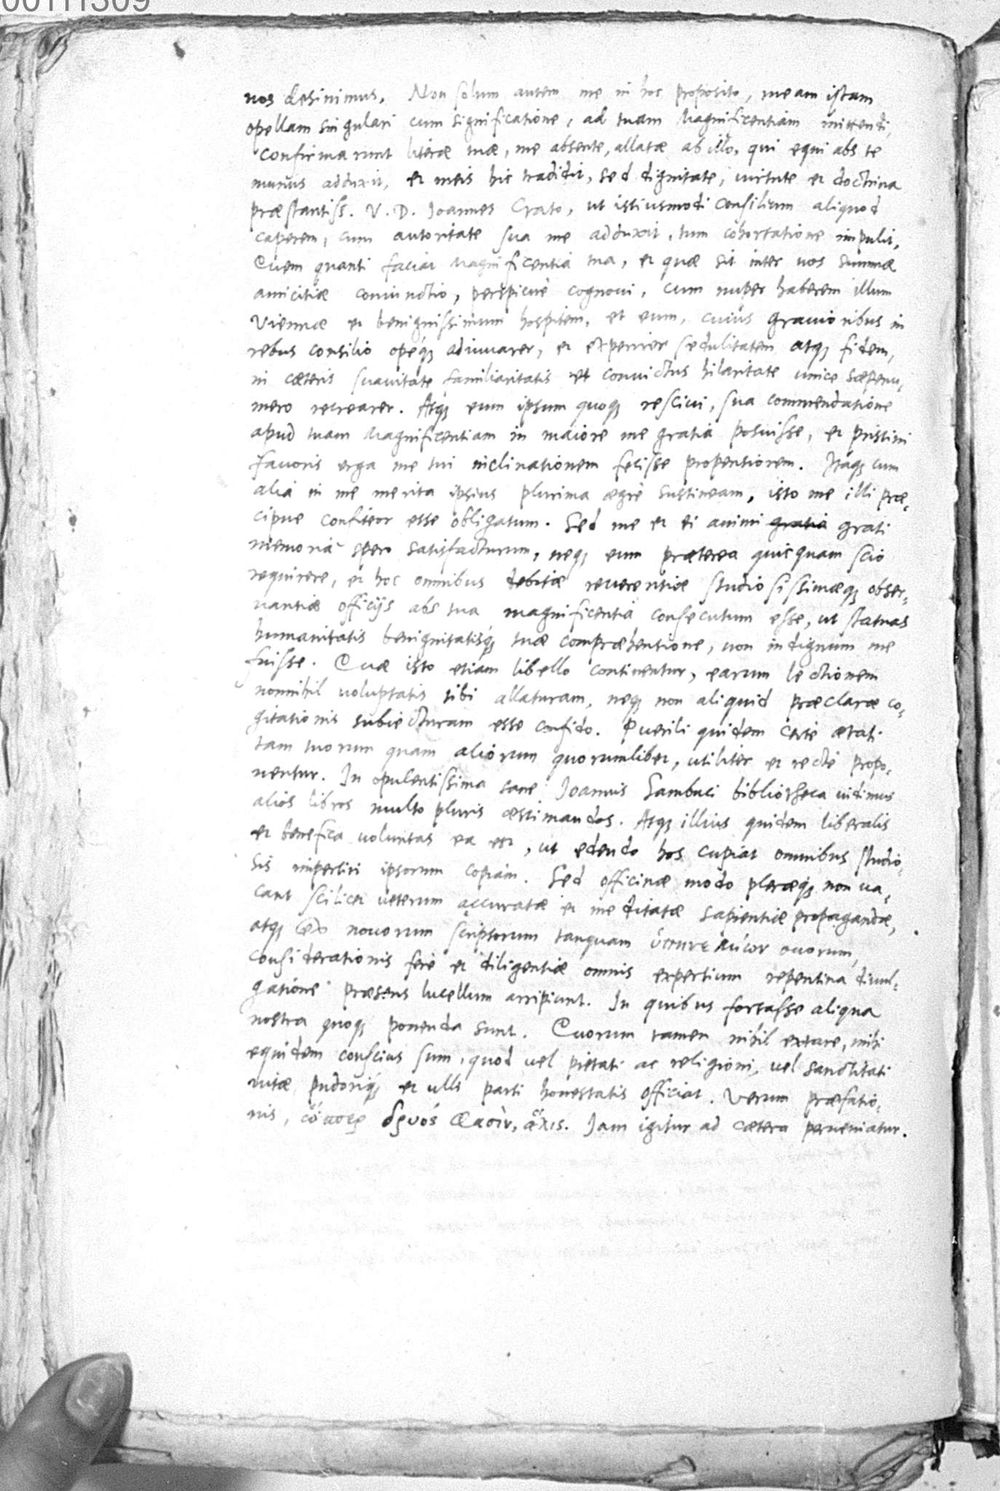 00111309
nos desinimus. Non solum autem me in hoc proposito, meam istam
opellam singulari cum significatione, ad tuam Magnificentiam mittendi,
confirmarunt literæ tuæ, me absente, allatæ ab illo, qui equi abs te
munus adduxit, et meis hic tradidit, sed dignitate, virtute et doctrina
præstantiss. V. D. Ioannes Crato, ut istiusmodi consilium aliquod
caperem, cum autoritate sua me adduxit, tum cohortatione impulit,
Quem quanti faciat Magnificentia tua, et quæ sit inter vos summæ
amicitiæ coniunctio, perspicuè cognovi, cum nuper haberem illum
Viennæ et benignissimum hospitem, et eum, cuius gravioribus in
rebus consilio opeq; adiuvarer, et experirer sedulitatem atq; fidem,
in cæteris suavitate familiaritatis et convictus hilaritate unice sæpenu-
mero recrearer. Atq; eum ipsum quoq; rescivi, sua commendatione
apud tuam Magnificentiam in maiore me gratia posuisse, et pristini
favoris erga me tui inclinationem fecisse propentiorem. Itaq; cum
alia in me merita ipsius plurima ægrè sustineam, isto me illi præ-
cipue confiteor esse obligatum. Sed me et ei animi gratia grati
memoriâ spero satisfacturum, neq; eum præterea quicquam scio
requirere, et hoc omnibus debitæ reverentiæ studiosissimæq; obser-
vantiæ officijs abs tua magnificentia consecutum esse, ut statuas
humanitatis benignitatisq; tuæ compræhensione, non indignum me
fuisse. Quæ isto etiam libello continentur, earum lectionem
nonnihil voluptatis tibi allaturam, neq; non aliquid præclaræ co-
gitationis subiecturam esse confido. Puerili quidem certe ætati
tam tuorum quam aliorum quorumlibet, utiliter et rectè propo-
nentur. In opulentissima sane Joannis Sambuci bibliotheca vidimus
alios libros multo pluris æstimandos. Atq; illius quidem liberalis
et benefica voluntas ea est, ut edendo hos cupiat omnibus studio-
sis impertiri ipsorum copiam. Sed officinæ modo pleræq; non va-
cant scilicet veterum accuratæ et meditatæ sapientiæ propagandæ,
atq; novorum scriptorum tanquam ovorum,
considerationis ferè et diligentiæ omnis expertium repentina divul-
gatione præsens lucellum arripiunt. In quibus fortasse aliqua
nostra quoq; ponenda sunt. Quorum tamen nihil extare, mihi
equidem conscius sum, quod vel pietati ac religioni, vel sanctitati
vitæ pudoriq; et ulli parti honestatis officiat. Verum præfatio-
nis, ὥσπερ δρυός φασὶν, ἅλις. Jam igitur ad cætera perveniatur.